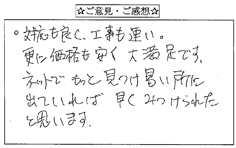 ☆ご意見・ご感想☆
。対応も良く、工事も速い。
更に価格も安く大満足です。
ネットでもっと見つけ易い所に
出ていれば早くみつけられた
と思います。